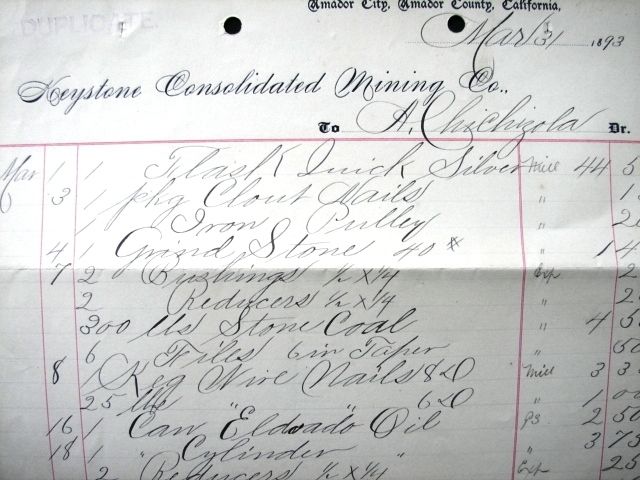 DUPLICATE.
Amador City, Amador County, California,
Mar 31 1893
Keystone Consolidated Mining Co.,
To A. Chichizola Dr.
Mar 1 1 Flask Quick Silver Mill 44 5
3 1 pkg Clout Nails " 1
1 Iron Pulley " 2
4 1 Grind Stone 40 # " 1 4
7 2 Bushings 1/2 x 1/4 Exp 2
2 Reducers 1/2 x 1/4 " 2
300 lbs Stone Coal " 4 5
6 Files 6 in Taper " 50
8 1 Keg Wire Nails 8D Mill 3 3
25 lbs " " 6D " 1 00
16 1 Can "Eldorado" Oil 2 50
18 1 " Cylinder " " 3 75
2 Reducers 1/2 x 1/4 Exp 25